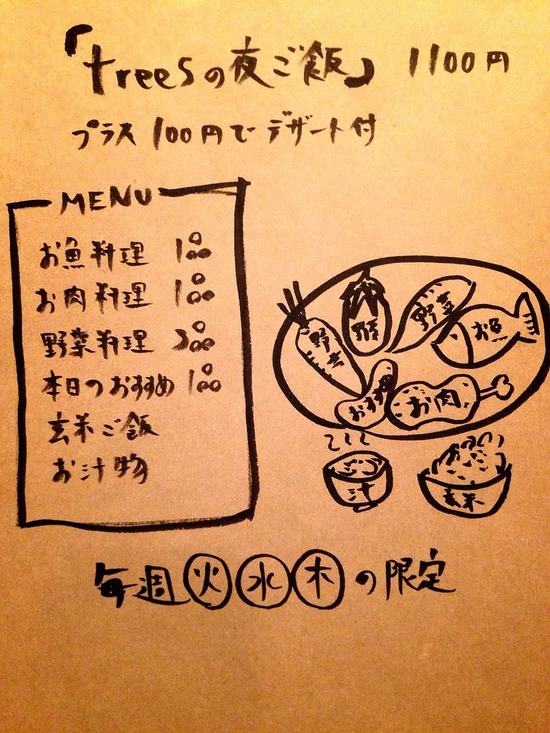 「treesの夜ご飯」 1100円
プラス100円でデザート付
MENU
お魚料理 1品
お肉料理 1品
野菜料理 3品
本日のおすすめ 1品
玄米ご飯
お汁物
野菜
野菜
野菜
お魚
お肉
汁
玄米
毎週火水木の限定